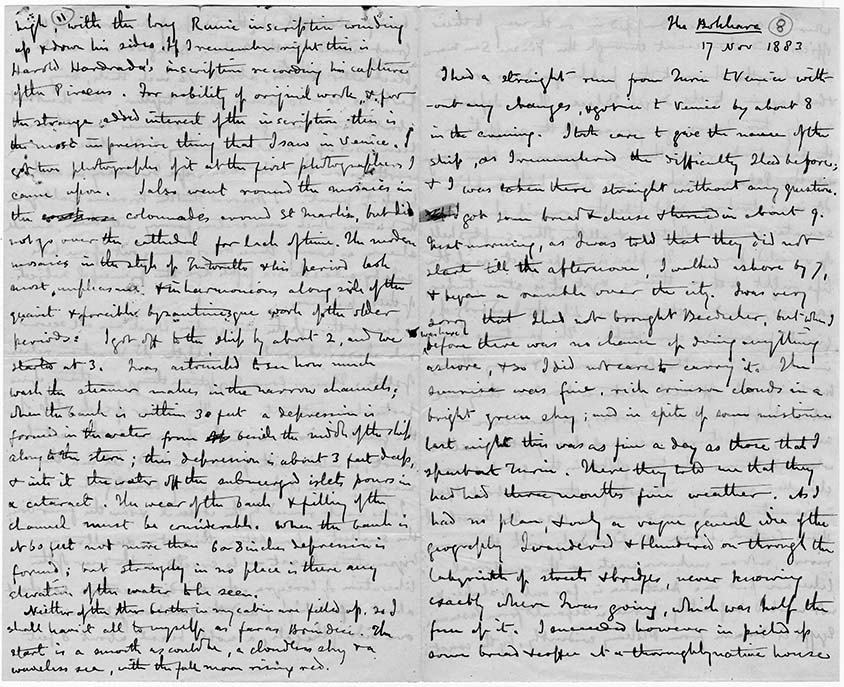 11
high, with the long Runic inscription winding
up & down his sides. If I remember right this is
Harold Hardrada's inscription recording his capture
of the Piraeus. For nobility of original work, & for
the strange added interest of the inscription this is
the most impressive thing that I saw in Venice. I
got two photographs of it at the first photographers I
came upon. I also went round the mosaics in
the colonnades around St Marks, but did
not go over the cathedral for lack of time. The modern
mosaics in the style of Tintoretto & his period look
most unpleasing & inharmonious along side of the
quaint & forcible byzantinesque work of the older
periods. I got off to the ship by about 2, and we
started at 3. I was astonished to see how much
wash the steamer makes in the narrow channels;
when the bank is within 30 feet a depression is
formed in the water from beside the middle of the ship
along to the stern; this depression is about 3 feet deep,
& into it the water off the submerged islets pours in
a cataract. The wear of the bank & filling of the
channel must be considerable. When the bank is
at 60 feet not more than 6 or 8 inches depression is
formed; but strangely in no place is there any
elevation of the water to be seen.
Neither of the other berths in my cabin are filled up, so I
shall have it all to myself as far as Brindisi. The
start is as smooth as could be, a cloudless sky & a
waveless sea, with the full moon rising red.
The Bokhara 8
17 Nov 1883
I had a straight run from Turin to Venice with-
-out any changes, & got in to Venice by about 8
in the evening. I took care to give the name of the
ship, as I remembered the difficulty I had before;
& I was taken there straight without any question.
I got some bread & cheese & turned in about 9.
Next morning, as I was told that they did not
start till the afternoon, I walked ashore by 7,
& began a ramble over the city. I was very
sorry that I had not brought Baedeker, but when I
before there was no chance of doing anything
ashore, & so I did not care to carry it. The
sunrise was fine, rich crimson clouds in a
bright green sky; and in spite of some mist
last night this was as fine a day as those that I
spent at Turin. There they told me that they
had had three months fine weather. As I
had no plan, & only a vague general idea of the
geography I wandered & blundered on through the
labyrinth of streets & bridges, never knowing
exactly where I was going, which was half the
fun of it. I succeeded however in picked up
some bread & coffee at a thoroughly native house